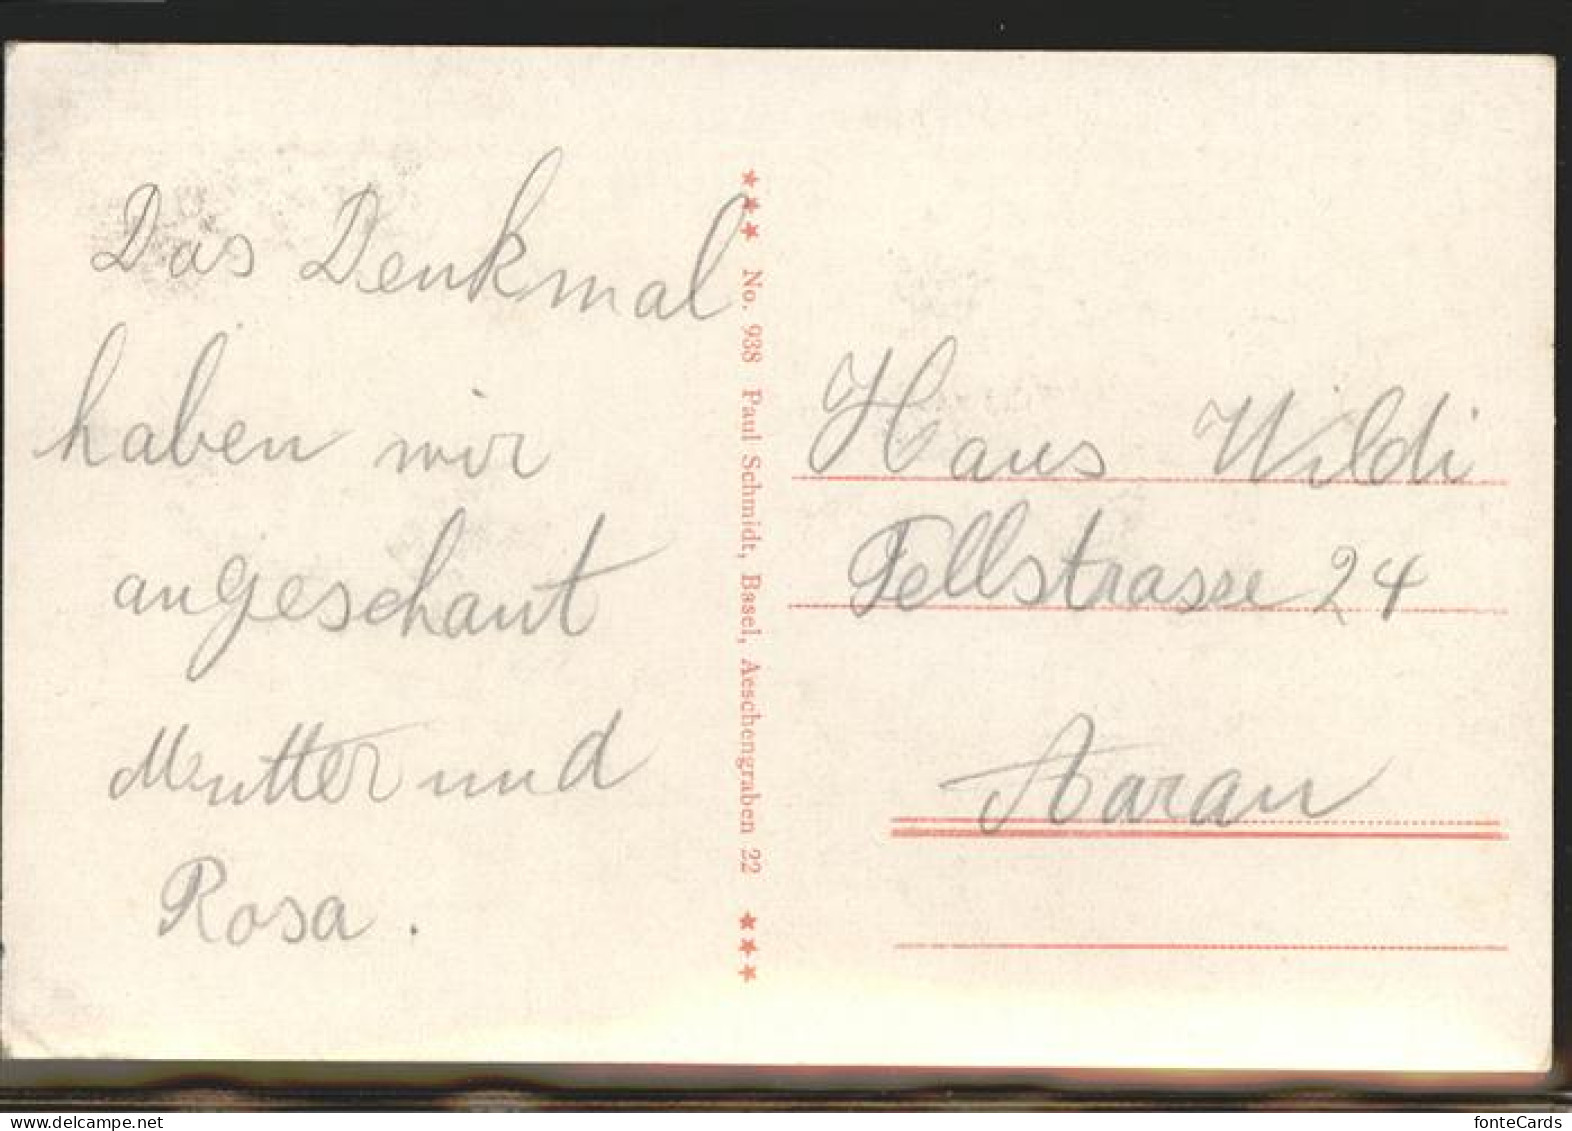 Das Denkmal
haben wir
angeschaut
Mutter und
Rosa.
★★★ No. 938 Paul Schmidt, Basel, Aeschengraben 22 ★★★
Hans Wildi
Tellstrasse 24
Aarau
fonteCards